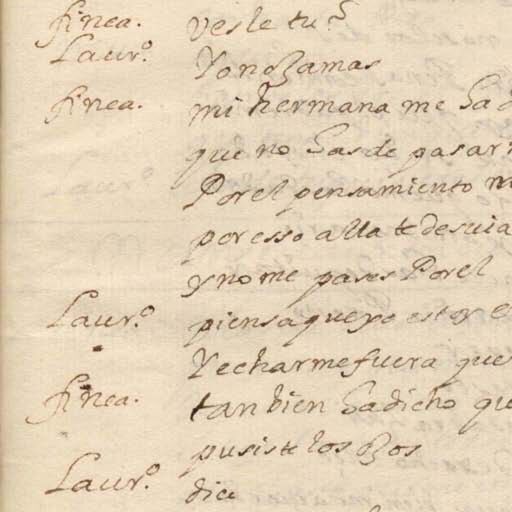 finea. vesle tu?
Laur.º Yo no Jamas
finea. mi hermana me ha d
que no has de pasar
Por el pensamiento
por esso alla te desuia
y no me pases Por el
Laur.º piensa que yo estoy e
Y echarme fuera que
finea. tan bien ha dicho qu
pusiste los ojos
Laur.º dice